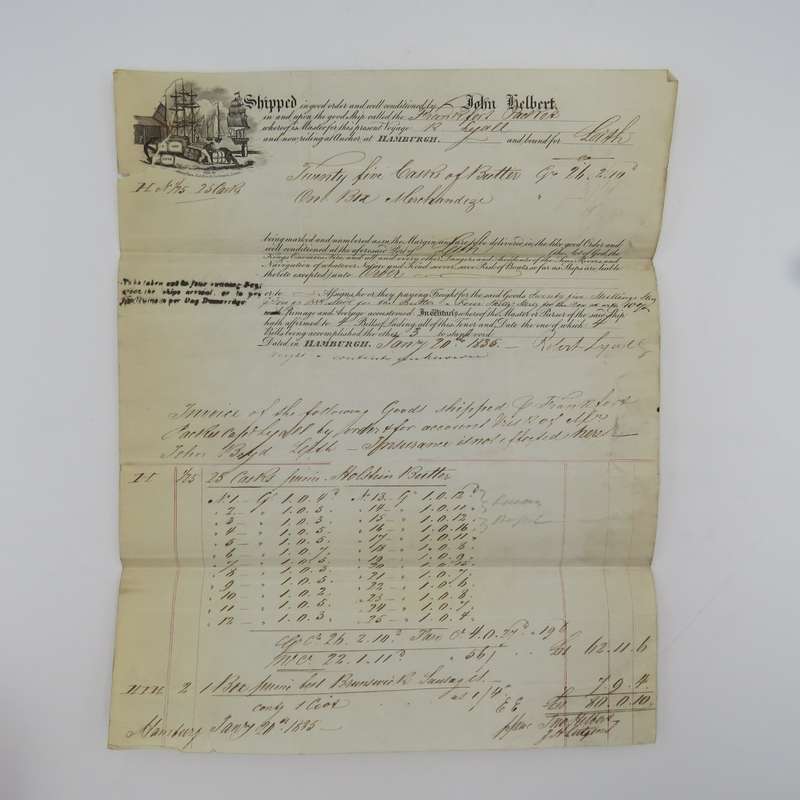 Shipped in good order and well conditioned by John Helbert
in and upon the good Ship called the Frankfort Packet
whereof is Master for this present Voyage R Lyall
and now riding at Anchor at HAMBURGH. and bound for Leith
Twenty five Casks of Butter 26.2.10
One Box Merchandize
H No 1/25 25 Casks
being marked and numbered as in the Margin, and are to be delivered in the like good Order and
well conditioned at the aforesaid Port of Leith (the Act of God, the
Kings Enemies, Fire, and all and every other Dangers and Accidents of the Seas, Rivers and
Navigation of whatever Nature and Kind soever, save Risk of Boats so far as Ships are liable
thereto excepted) unto Order
To be taken out in four running Days
after the ships arrival, or to pay
per Day Demurrage
or to Assigns, he or they paying Freight for the said Goods Twenty five Shillings Stg
with Primage and Average accustomed. In Witness whereof the Master or Purser of the said Ship
hath affirmed to 4 Bills of Lading, all of this Tenor and Date, the one of which 4
Bills being accomplished, the other 3 to stand void.
Dated in HAMBURGH. Jany 20th 1835 Robert Lyall
weight & contents unknown
Invoice of the following Goods shipped P Frankfort
Packet Capt Lyall by order & for account & risk of Mr
John Boyd Leith - Insurance is not effected here
H 1/25 25 Casks prime Holstein Butter
No 1 - 1.0.4 No 13 - 1.0.12
2 - 1.0.5 14 - 1.0.11
3 - 1.0.3 15 - 1.0.12
4 - 1.0.5 16 - 1.0.16
5 - 1.0.5 17 - 1.0.11
6 - 1.0.7 18 - 1.0.6
7 - 1.0.5 19 - 1.0.9
8 - 1.0.3 20
9 - 1.0.5 21 - 1.0.7
10 - 1.0.2 22 - 1.0.6
11 - 1.0.5 23 - 1.0.8
12 - 1.0.3 24 - 1.0.7
25 - 1.0.4
26.2.10 Tare 4.0.27
22.1.11 56/ 62.11.6
HH 2 1 Box prime best Brunswick Sausages
7 9.4
80.0.10
Hamburg Jany 20th 1835